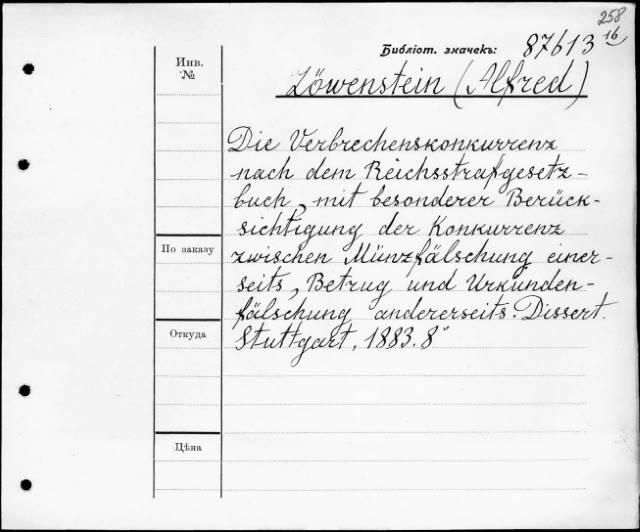 258
16
Библіот. значекъ: 87613
Инв.
№
Löwenstein (Alfred)
Die Verbrechenskonkurrenz
nach dem Reichsstrafgesetz-
buch, mit besonderer Berück-
sichtigung der Konkurrenz
По заказу
zwischen Münzfälschung einer-
seits, Betrug und Urkunden-
fälschung andererseits. Dissert.
Откуда
Stuttgart, 1883. 8°
Цѣна